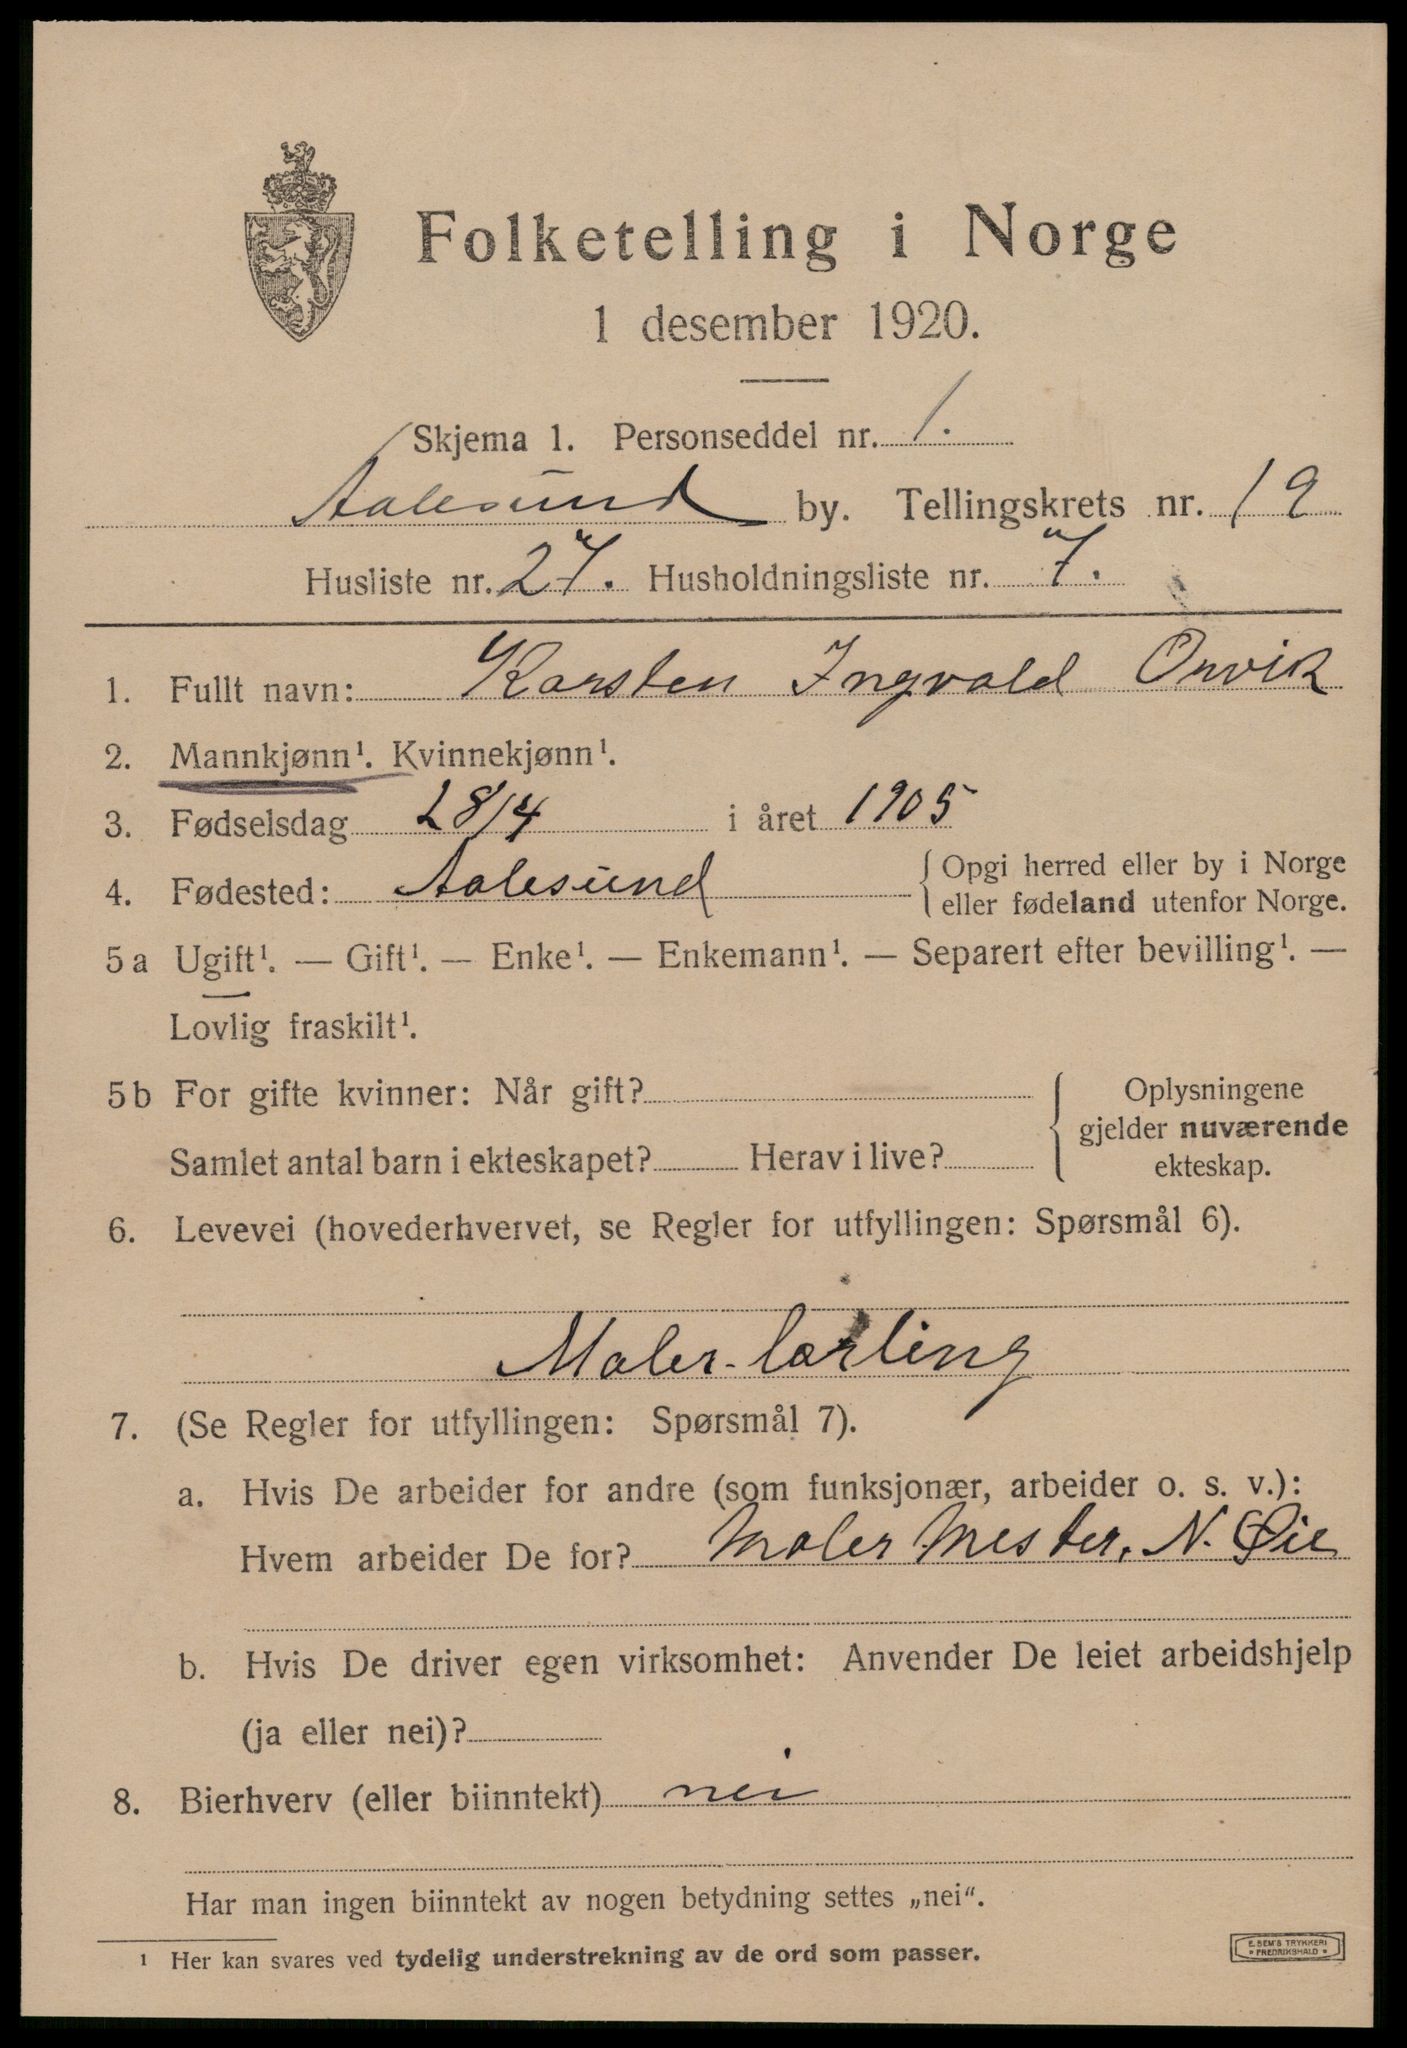 Folketelling i Norge
1 desember 1920.
Skjema 1. Personseddel nr. 1.
Aalesund by. Tellingskrets nr. 19
Husliste nr. 27. Husholdningsliste nr. 7.
1. Fullt navn: Karsten Ingvald Orvik
2. Mannkjønn¹. Kvinnekjønn¹.
3. Fødselsdag 28/4 i året 1905
4. Fødested: Aalesund { Opgi herred eller by i Norge
eller fødeland utenfor Norge.
5a Ugift¹. — Gift¹. — Enke¹. — Enkemann¹. — Separert efter bevilling¹. —
Lovlig fraskilt¹.
5b For gifte kvinner: Når gift? { Oplysningene
gjelder nuværende
Samlet antal barn i ekteskapet? Herav i live? ekteskap.
6. Levevei (hovederhvervet, se Regler for utfyllingen: Spørsmål 6).
Maler-lærling
7. (Se Regler for utfyllingen: Spørsmål 7).
a. Hvis De arbeider for andre (som funksjonær, arbeider o. s. v.):
Hvem arbeider De for? Maler Mester, N. Øie
b. Hvis De driver egen virksomhet: Anvender De leiet arbeidshjelp
(ja eller nei)?
8. Bierhverv (eller biinntekt) nei
Har man ingen biinntekt av nogen betydning settes „nei“.
¹ Her kan svares ved tydelig understrekning av de ord som passer.
E. SEM'S TRYKKERI
• FREDRIKSHALD •